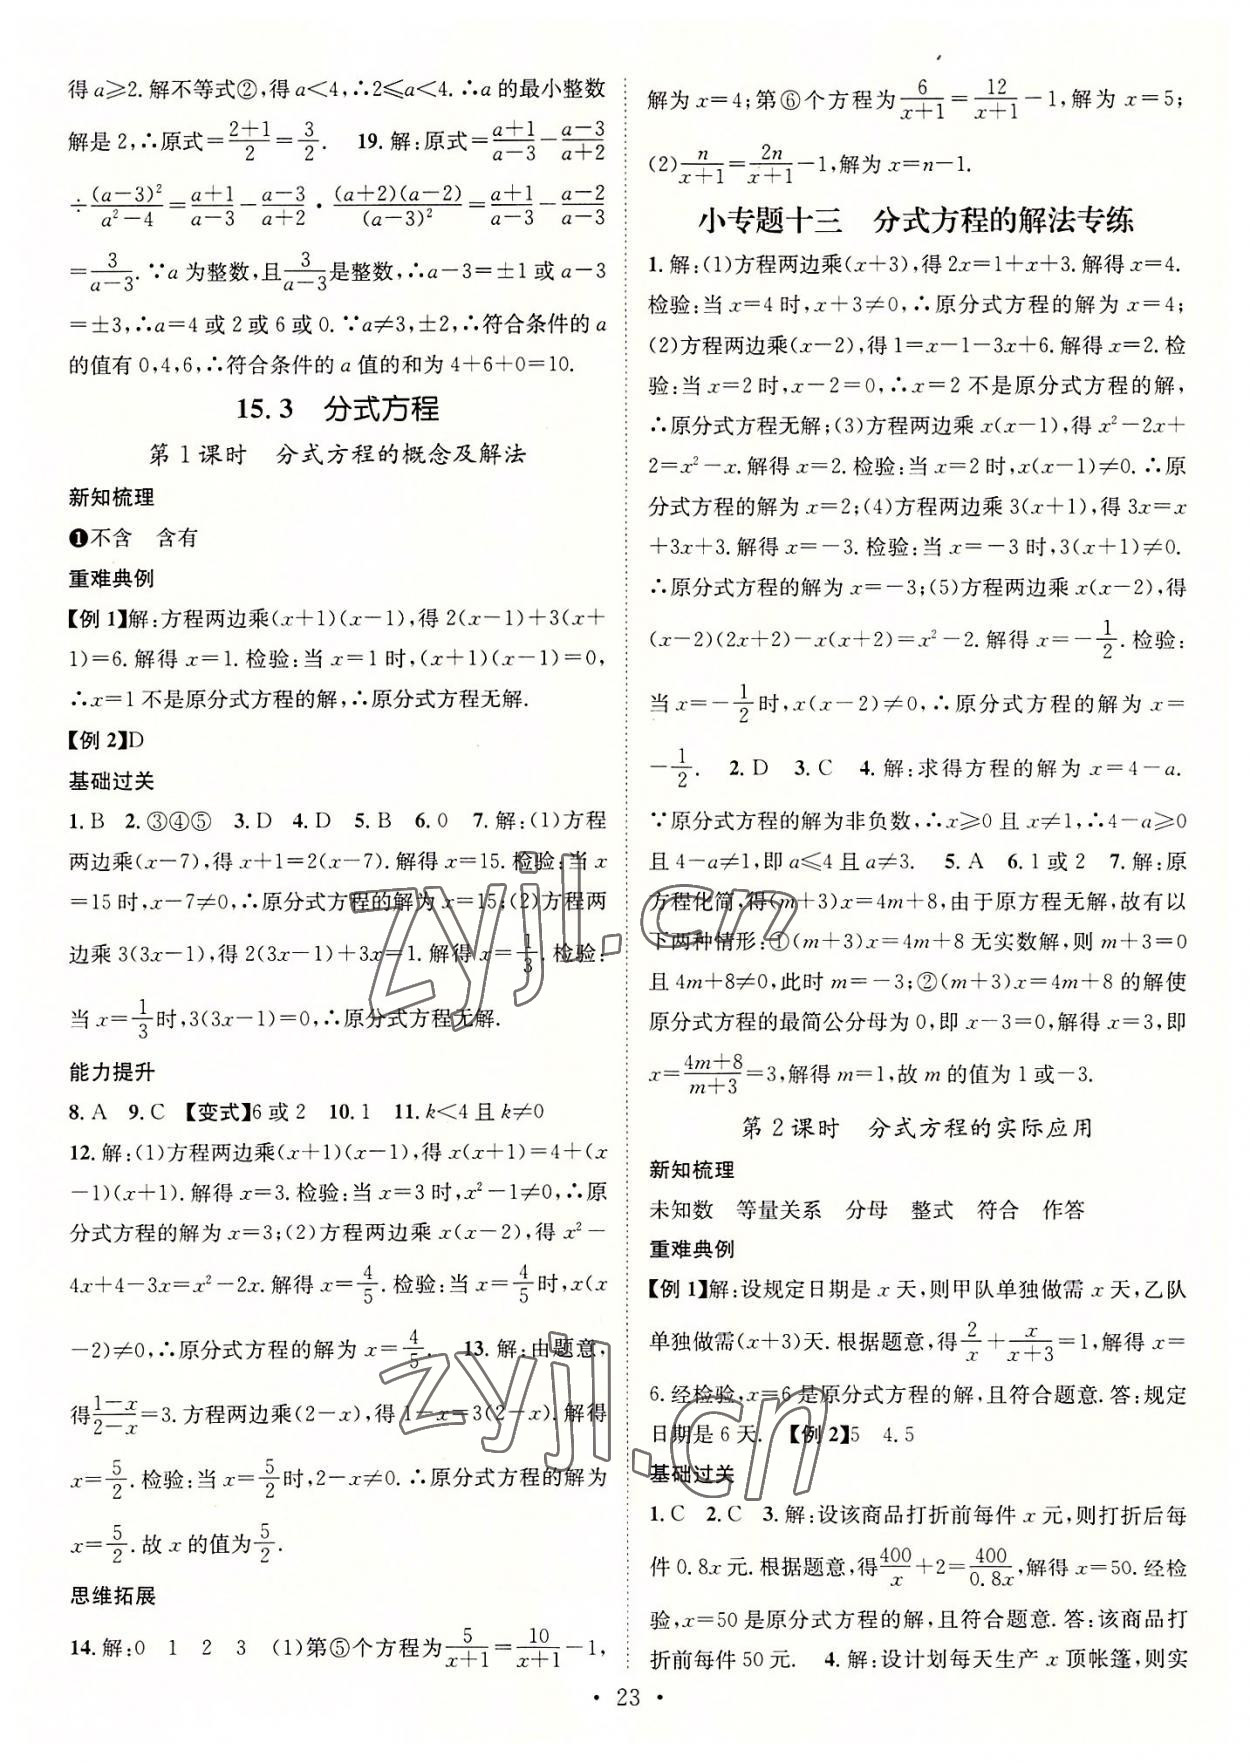 得a≥2.解不等式②,得a<4,∴2≤a<4.∴a的最小整数
解是2,∴原式=\frac{2+1}{2}=\frac{3}{2}. 19.解:原式=\frac{a+1}{a-3}-\frac{a-3}{a+2}
÷\frac{(a-3)²}{a²-4}=\frac{a+1}{a-3}-\frac{a-3}{a+2}·\frac{(a+2)(a-2)}{(a-3)²}=\frac{a+1}{a-3}-\frac{a-2}{a-3}
=\frac{3}{a-3}.∵a为整数,且\frac{3}{a-3}是整数,∴a-3=±1或a-3
=±3,∴a=4或2或6或0.∵a≠3,±2,∴符合条件的a
的值有0,4,6,∴符合条件的a值的和为4+6+0=10.
15.3 分式方程
第1课时 分式方程的概念及解法
新知梳理
❶不含 含有
重难典例
【例1】解:方程两边乘(x+1)(x-1),得2(x-1)+3(x+
1)=6.解得x=1.检验:当x=1时,(x+1)(x-1)=0,
∴x=1不是原分式方程的解,∴原分式方程无解.
【例2】D
基础过关
1.B 2.③④⑤ 3.D 4.D 5.B 6.0 7.解:(1)方程
两边乘(x-7),得x+1=2(x-7).解得x=15.检验:当x
=15时,x-7≠0,∴原分式方程的解为x=15;(2)方程两
边乘3(3x-1),得2(3x-1)+3x=1.解得x=\frac{1}{3}.检验:
当x=\frac{1}{3}时,3(3x-1)=0,∴原分式方程无解.
能力提升
8.A 9.C 【变式】6或2 10.1 11.k<4且k≠0
12.解:(1)方程两边乘(x+1)(x-1),得x(x+1)=4+(x
-1)(x+1).解得x=3.检验:当x=3时,x²-1≠0,∴原
分式方程的解为x=3;(2)方程两边乘x(x-2),得x²-
4x+4-3x=x²-2x.解得x=\frac{4}{5}.检验:当x=\frac{4}{5}时,x(x
-2)≠0,∴原分式方程的解为x=\frac{4}{5}. 13.解:由题意,
得\frac{1-x}{2-x}=3.方程两边乘(2-x),得1-x=3(2-x).解得
x=\frac{5}{2}.检验:当x=\frac{5}{2}时,2-x≠0.∴原分式方程的解为
x=\frac{5}{2}.故x的值为\frac{5}{2}.
思维拓展
14.解:0 1 2 3 (1)第⑤个方程为\frac{5}{x+1}=\frac{10}{x+1}-1,
解为x=4;第⑥个方程为\frac{6}{x+1}=\frac{12}{x+1}-1,解为x=5;
(2)\frac{n}{x+1}=\frac{2n}{x+1}-1,解为x=n-1.
小专题十三 分式方程的解法专练
1.解:(1)方程两边乘(x+3),得2x=1+x+3.解得x=4.
检验:当x=4时,x+3≠0,∴原分式方程的解为x=4;
(2)方程两边乘(x-2),得1=x-1-3x+6.解得x=2.检
验:当x=2时,x-2=0,∴x=2不是原分式方程的解,
∴原分式方程无解;(3)方程两边乘x(x-1),得x²-2x+
2=x²-x.解得x=2.检验:当x=2时,x(x-1)≠0.∴原
分式方程的解为x=2;(4)方程两边乘3(x+1),得3x=x
+3x+3.解得x=-3.检验:当x=-3时,3(x+1)≠0.
∴原分式方程的解为x=-3;(5)方程两边乘x(x-2),得
(x-2)(2x+2)-x(x+2)=x²-2.解得x=-\frac{1}{2}.检验:
当x=-\frac{1}{2}时,x(x-2)≠0,∴原分式方程的解为x=
-\frac{1}{2}. 2.D 3.C 4.解:求得方程的解为x=4-a.
∵原分式方程的解为非负数,∴x≥0且x≠1,∴4-a≥0
且4-a≠1,即a≤4且a≠3. 5.A 6.1或2 7.解:原
方程化简,得(m+3)x=4m+8,由于原方程无解,故有以
下两种情形:①(m+3)x=4m+8无实数解,则m+3=0
且4m+8≠0,此时m=-3;②(m+3)x=4m+8的解使
原分式方程的最简公分母为0,即x-3=0,解得x=3,即
x=\frac{4m+8}{m+3}=3,解得m=1,故m的值为1或-3.
第2课时 分式方程的实际应用
新知梳理
未知数 等量关系 分母 整式 符合 作答
重难典例
【例1】解:设规定日期是x天,则甲队单独做需x天,乙队
单独做需(x+3)天.根据题意,得\frac{2}{x}+\frac{x}{x+3}=1,解得x=
6.经检验,x=6是原分式方程的解,且符合题意.答:规定
日期是6天. 【例2】5 4.5
基础过关
1.C 2.C 3.解:设该商品打折前每件x元,则打折后每
件0.8x元.根据题意,得\frac{400}{x}+2=\frac{400}{0.8x},解得x=50.经检
验,x=50是原分式方程的解,且符合题意.答:该商品打
折前每件50元. 4.解:设计划每天生产x顶帐篷,则实
· 23 ·
zyjl.cn
zyjl.cn